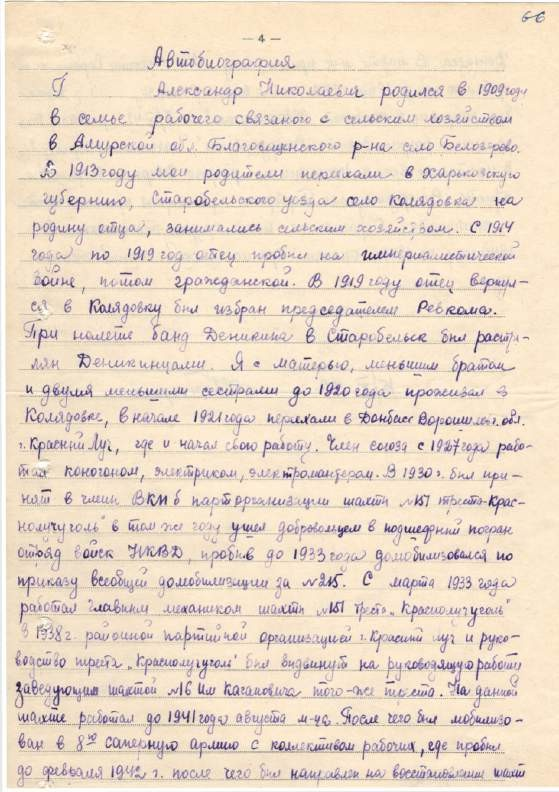 66
— 4 —
Автобиография
Г Александр Николаевич родился в 1909 году
в семье рабочего связаного с сельским хозяйством
в Амурской обл. Благовещенского р-на село Белогорово.
В 1913 году мои родители переехали в Харьковскую
губернию, Старобельского уезда село Колядовка на
родину отца, занимались сельским хозяйством. С 1914
года по 1919 год отец пробыл на империалистической
войне, потом гражданской. В 1919 году отец вернул-
ся в Колядовку был избран председателем Ревкома.
При налете банд Деникина в Старобельск был растре-
лян Деникинцами. Я с матерью, меньшим братом
и двумя меньшими сестрами до 1920 года проживал в
Колядовке, в начале 1921 года переехали в Донбасс Ворошил. обл.
г. Красний Луч, где и начал свою работу. Член союза с 1927 года рабо-
тал коногоном, электриком, электромонтером. В 1930 г. был при-
нят в члены ВКПб парторганизации шахты № 151 треста „Крас-
нолучуголь" в том же году ушел добровольцем в подшефный погран
отряд войск НКВД, пробыв до 1933 года домобилизовался по
приказу всеобщей домобилизации за № 215. С марта 1933 года
работал главным механиком шахты № 151 треста „Краснолучуголь"
В 1938 г. районной партийной организацией г. Красный Луч и руко-
водство треста „Краснолучуголь" был выдвинут на руководящую работу
заведующим шахтой № 16 им Кагановича того-же треста. На данной
шахте работал до 1941 года августа м-ца. После чего был мобилизо-
ван в 8ую саперную армию с коллективом рабочих, где пробыл
до февраля 1942 г. после чего был направлен на восстановление шахт